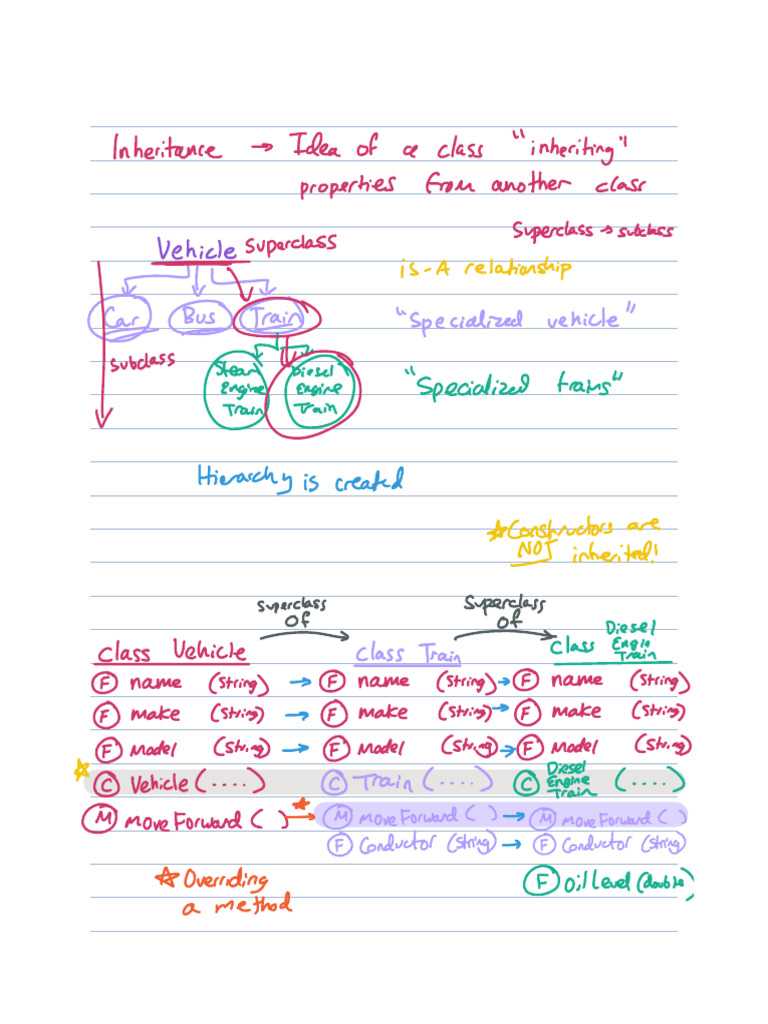 Inheritance → Idea of a class "inheriting"
properties from another class
Superclass → subclass
Vehicle Superclass
is-A relationship
Car Bus Train
"Specialized vehicle"
Subclass
Steam Engine Train
Diesel Engine Train
"Specialized trains"
Hierarchy is created
☆ Constructors are
NOT inherited!
superclass of → Superclass of →
class Vehicle class Train class Diesel Engin Train
F name (String) → F name (String) → F name (String)
F make (String) → F make (String) → F make (String)
F Model (String) → F Model (String) → F Model (String)
☆ C Vehicle (....) C Train (....) C Diesel Engine Train (....)
M moveForward ( ) ★→ M moveForward ( ) → M moveForward ( )
F Conductor (String) → F Conductor (String)
☆ Overriding
a method
F Oil level (double)